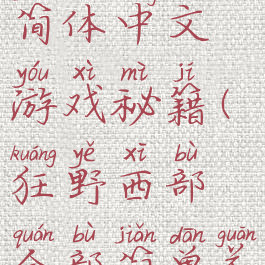 简体中文
yóu xì mì jí
游戏秘籍(
kuáng yě xī bù
狂野西部
quán bù jiǎn dān guān
全部简单关